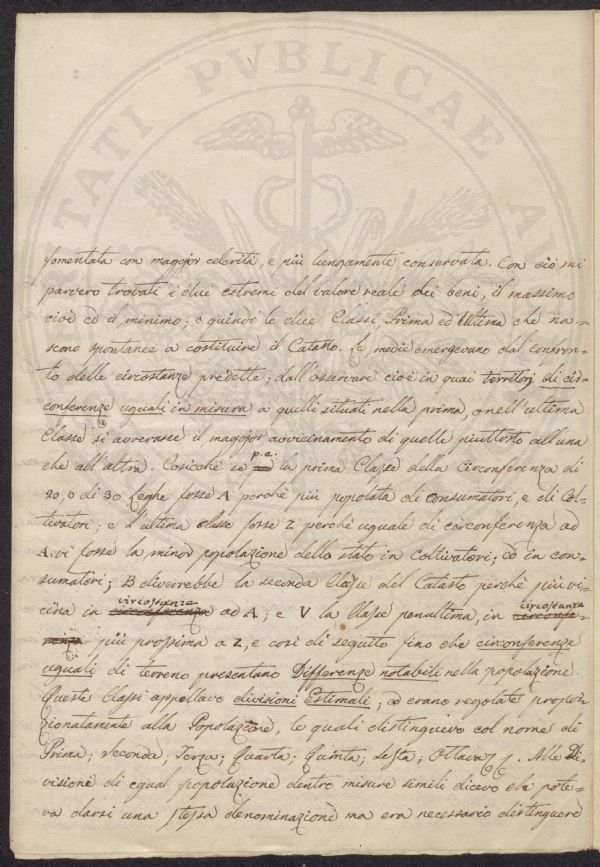 TATI PVBLICAE AV
fomentata con maggior celerità, e più lungamente conservata. Con ciò mi
parvero trovati i due estremi del valore reale dei beni, il massimo
cioè ed il minimo; e quindi le due Classi, Prima ed Ultima che na=
scono spontanee a costituire il Catasto. Le medie emergevano dal confron=
to delle circostanze predette; dall'osservare cioè in quai territorj di cir=
conferenze uguali in misura a quelli situati nella prima, o nell'ultima
Classe si avverasse il maggior avvicinamento di quelle piuttosto all'una
che all'altra. Cosicchè se p.e. la prima Classe della Circonferenza di
20, o di 30 leghe fosse A perchè più popolata di consumatori, e di Col=
tivatori; e l'ultima classe fosse Z perchè uguale di circonferenza ad
A. vi fosse la minor popolazione dello stato in coltivatori; ed in con=
sumatori; B diverrebbe la seconda Classe del Catasto perchè più vi=
circostanze circostanze
cina in circonferenza ad A; e V la Classe penultima, in circonfe=
renza più prossima a Z, e così di seguito fino che circonferenze
uguali di terreno presentano Differenze notabili nella popolazione.
Queste Classi appellavo divisioni Estimali, ed erano regolate propor=
zionatamente alla Popolazione, le quali distinguevo col nome di
Prima; Seconda; Terza; Quarta; Quinta; Sesta; Ottava. Alle Di=
visioni di egual popolazione dentro misure simili dicevo che pote=
va darsi una stessa denominazione ma era necessario distinguere